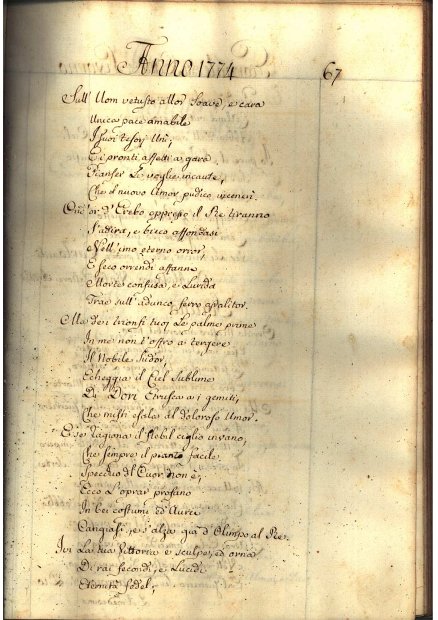 Anno 1774
67
Sull' Uom vetusto allor soave, e cara
Unica pace amabile
I suoi tesori unì,
E i pronti affetti a gara
Planser le voglie incaute,
Che d nuovo Amor pudico incenerì.
Ond' or d'Erebo oppresso il Re tiranno
S'adira, e bieco affondasi
Nell' imo eterno orror,
E seco orrendi affanni
Morte confusa, e lurida
Trae sull' adunco ferro assalitor.
Ma de i trionfi tuoi le palme prime
In me non t'offro a tergere
Il nobile sudor,
Echeggia il Ciel sublime
Di Dori Etrusca a i gemiti,
Che misti esala al doloroso Amor.
E se ragiona il flebil ciglio invano,
Che sempre il pianto facile
Specchio dl Cuor non è,
Ecco l'oprar profano
In bei costumi ed aurei
Cangiasi, e s'alza già d'Olimpo al Re.
Ivi la tua Vittoria e sculpe, ed orna
Di rai fecondi, e lucidi
Eternità fedel,